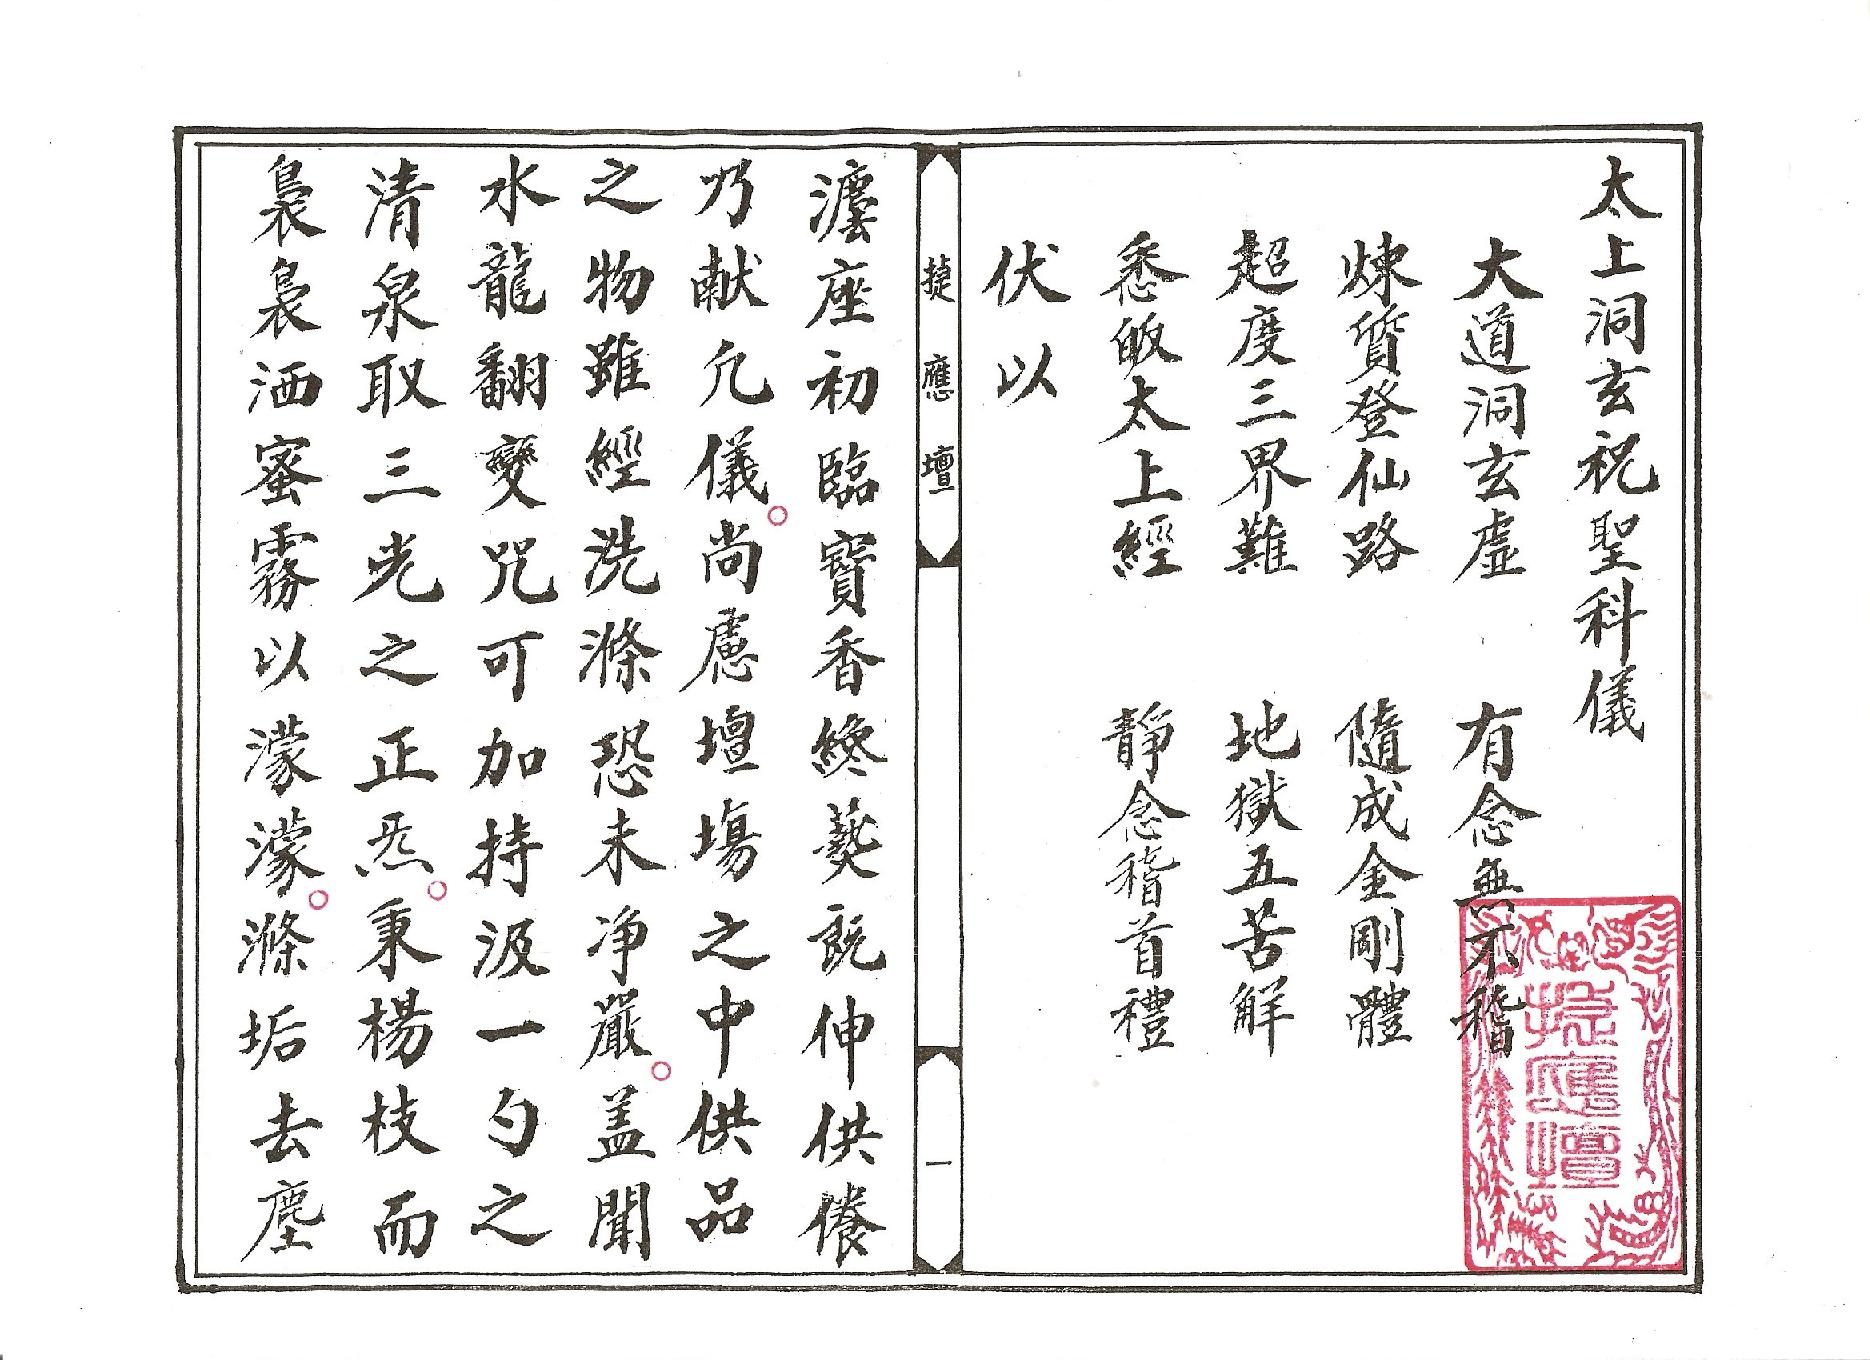 太上洞玄祝聖科儀
大道洞玄虛　有念無不稽
煉質登仙路　隨成金剛體
超度三界難　地獄五苦解
悉皈太上經　靜念稽首禮
伏以
捷應壇
一
瀍座初臨寶香終爇既伸供養
乃献凢儀。尚慮壇場之中供品
之物雖經洗滌恐未净嚴。盖聞
水龍翻變咒可加持汲一勺之
清泉取三光之正炁。秉楊枝而
裊裊洒蜜霧以濛濛。滌垢去塵
捷應壇